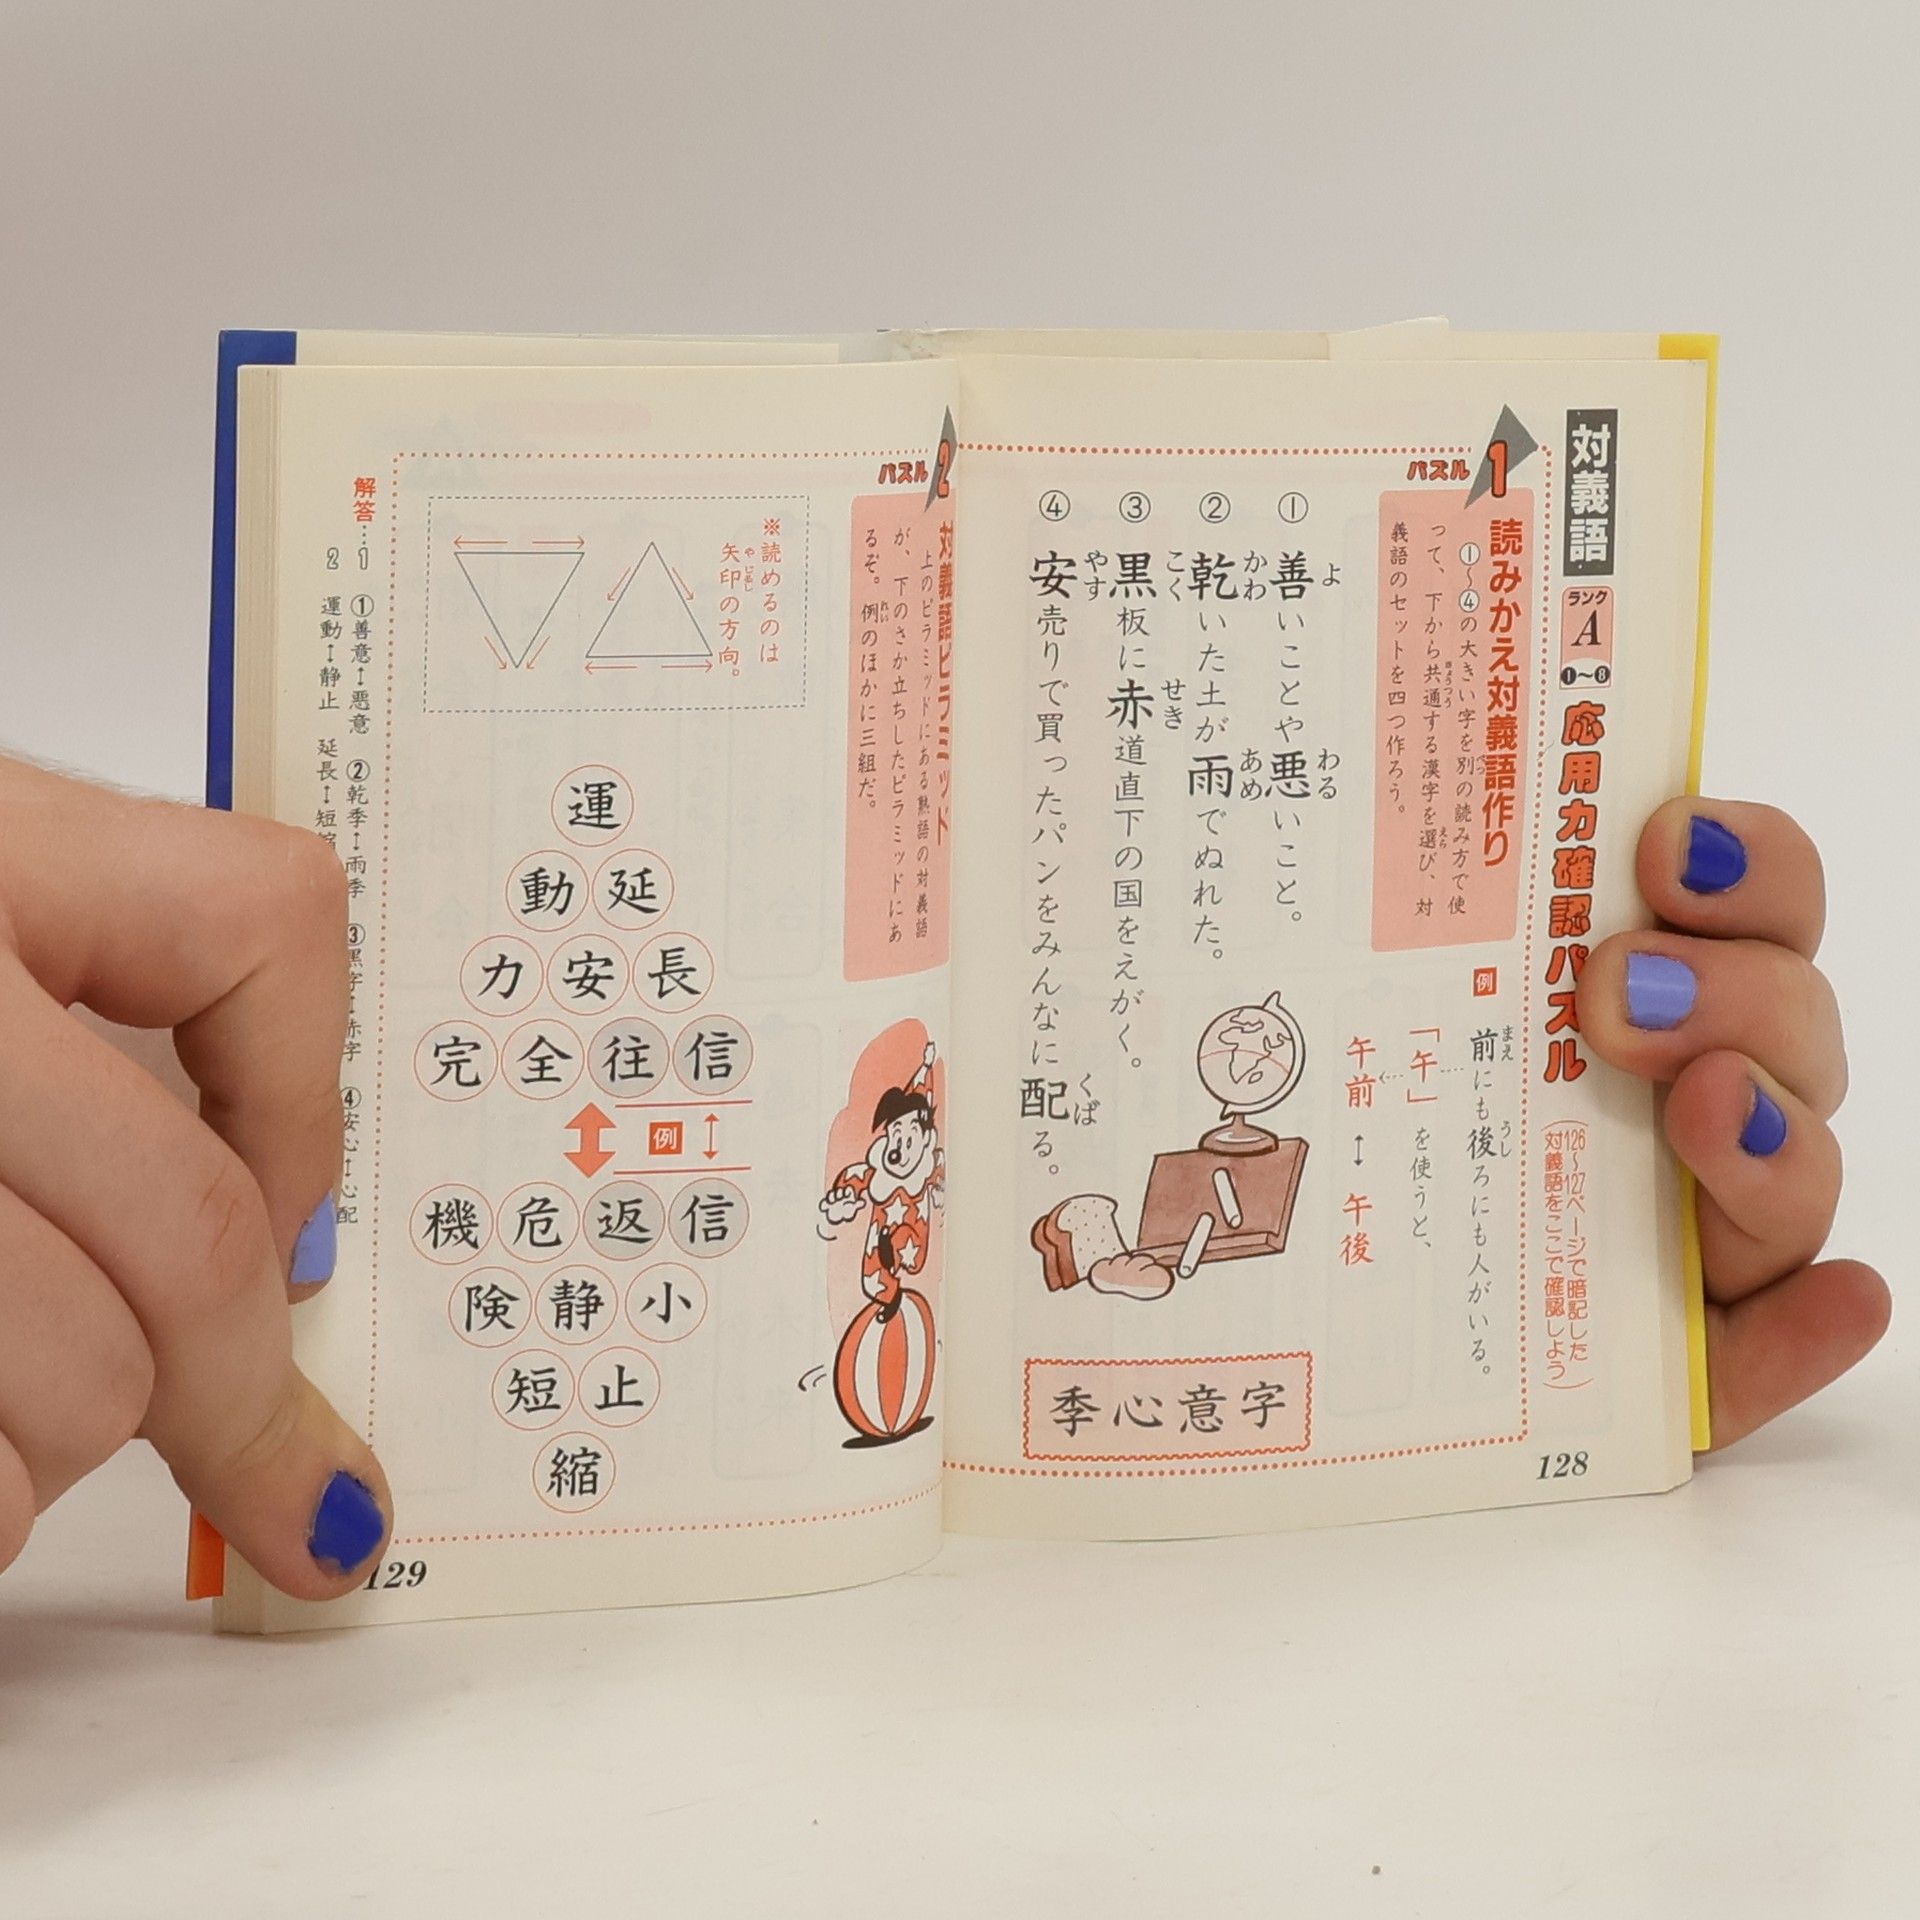 対義語
ランク
A
❶〜❽
応用力確認パズル
(126〜127ページで暗記した
対義語をここで確認しよう)
パズル
1
読みかえ対義語作り
①〜④の大きい字を別の読み方で使
って、下から共通する漢字を選び、対
義語のセットを四つ作ろう。
例
前にも後ろにも人がいる。
「午」を使うと、
午前↔午後
①善いことや悪いこと。
②乾いた土が雨でぬれた。
③黒板に赤道直下の国をえがく。
④安売りで買ったパンをみんなに配る。
季心意字
128
パズル
2
対義語ピラミッド
上のピラミッドにある熟語の対義語
が、下のさか立ちしたピラミッドにあ
るぞ。例のほかに三組だ。
※読めるのは
矢印の方向。
運
動延
力安長
完全往信
例
機危返信
険静小
短止
縮
解答…1 ①善意↔悪意 ②乾季↔雨季 ③黒字↔赤字 ④安心↔心配
2 運動↔静止 延長↔短縮
129